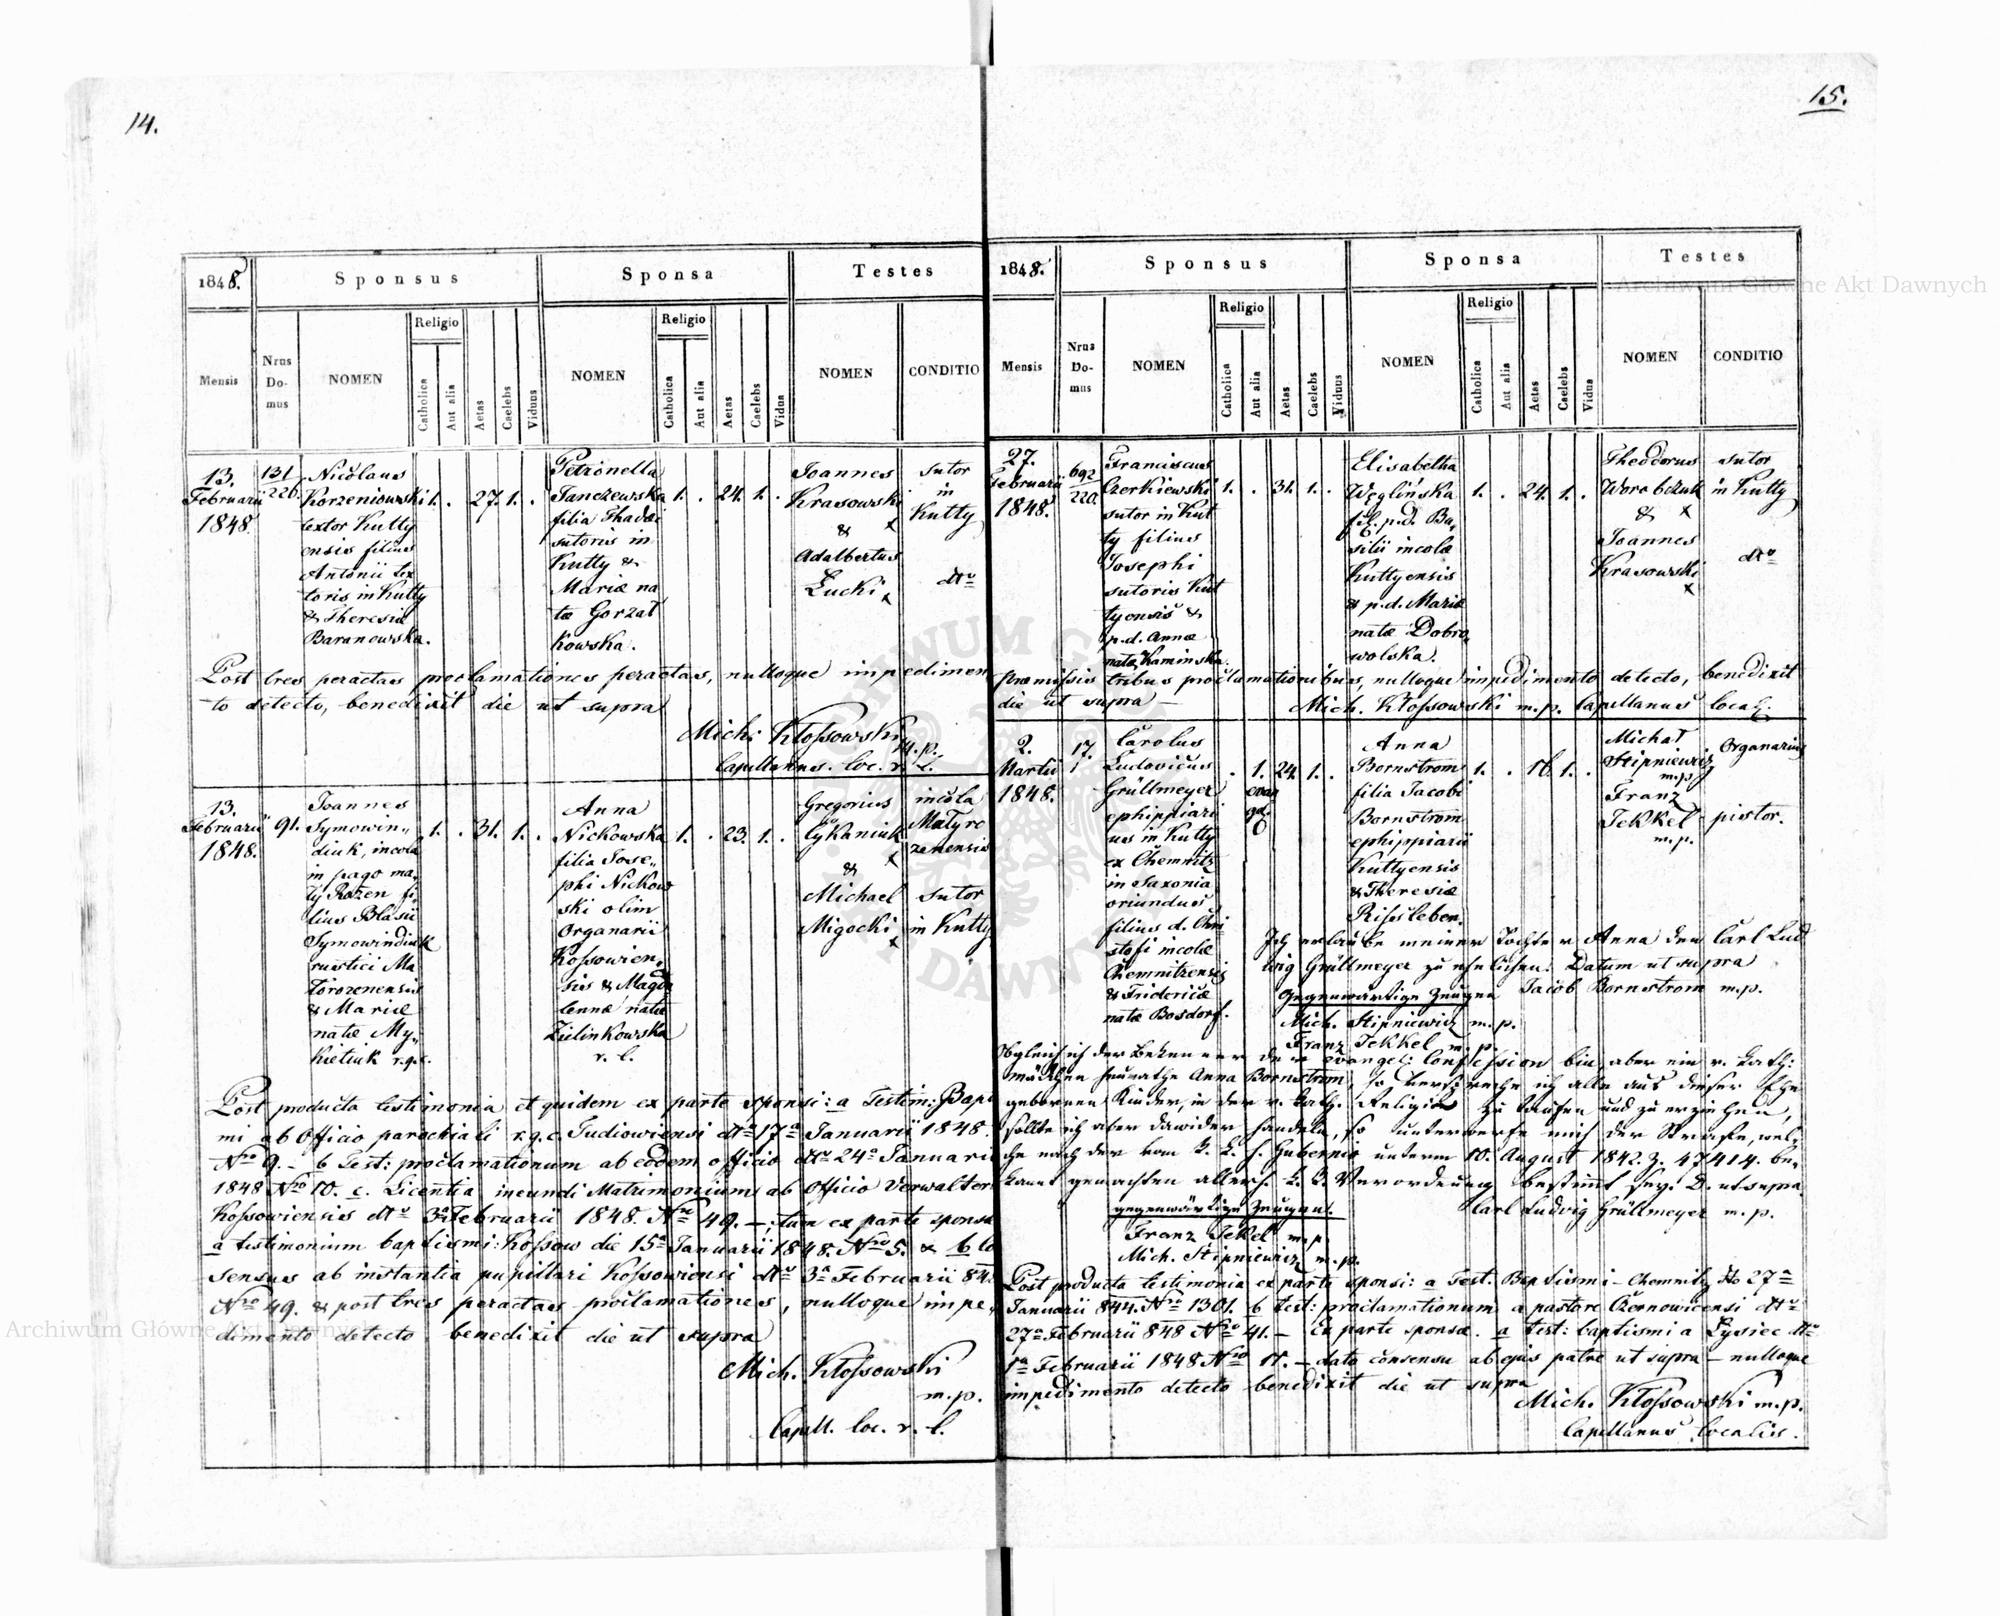 14.
1848.
Sponsus
Sponsa
Testes
Mensis
Nrus Domus
NOMEN
Religio
Catholica
Aut alia
Aetas
Caelebs
Viduus
NOMEN
Religio
Catholica
Aut alia
Aetas
Caelebs
Vidua
NOMEN
CONDITIO
13.
Februarii
1848
131
226.
Nicolaus
Korzeniowski
textor Kutty
ensis filius
Antonii tex
toris in Kutty
& Theresiæ
Baranowska.
1. . 27. 1. .
Petronella
Janczewska
filia Thadæi
sutoris in
Kutty &
Mariæ na
tæ Gorzał
kowska.
1. . 24. 1. .
Joannes
Krasowski
x
&
Adalbertus
Łucki x
sutor
in
Kutty
dto
Post tres peractas proclamationes peractas, nulloque impedimen
to detecto, benedixit die ut supra
Mich. Kłossowski m.p.
Capellanus. loc. r. l.
13.
Februarii
1848.
91.
Joannes
Symowin„
diuk, incola
in pago ma„
ły Rożen fi„
lius Blasii
Symowindiuk
rustici Ma
łorozenensis
& Mariæ
natæ My„
kietiuk r.g.c.
1. . 31. 1. .
Anna
Nickowska
filia Jose„
phi Nickow
ski olim
Organarii
Kossowien„
sis & Magda
lennæ natæ
Zielinkowska
r. l.
1. . 23. 1. .
Gregorius
Cykaniuk
x
&
Michael
Migocki x
incola
Małyro
zenensis
sutor
in Kutty
Post producta testimonia et quidem ex parte sponsi: a Testim: Bapt
mi ab Officio parochiali r.g.c. Judiowiensi dto 17a Januarii 1848.
Nro 9. - b Test: proclamationum ab eodem officio dto 24a Januarii
1848 Nro 10. c. Licentia ineundi Matrimonium ab Officio Verwalters
Kossowiensis dto 3a Februarii 1848. Nro 49. —; tum ex parte sponsæ
a testimonium baptismi: Kossow die 15a Januarii 1848. Nro 5. & b co
sensus ab instantia pupillari Kossowiensi dto 3a Februarii 848
Nro 49. & post tres peractas proclamationes, nulloque impe„
dimento detecto benedixit die ut supra
Mich. Kłossowski
m.p.
Capell. loc. r. l.
15.
1848.
Sponsus
Sponsa
Testes
Mensis
Nrus Domus
NOMEN
Religio
Catholica
Aut alia
Aetas
Caelebs
Viduus
NOMEN
Religio
Catholica
Aut alia
Aetas
Caelebs
Vidua
NOMEN
CONDITIO
27.
Februarii
1848.
692
220.
Franciscus
Czerkiewski
sutor in Kut
ty filius
Josephi
sutoris Kut
tyensis &
p.d. Annæ
natæ Kaminska.
1. . 31. 1. .
Elisabetha
Węglińska
fil. p.d. Ba„
silii incolæ
Kuttyensis
& p.d. Mariæ
natæ Dobro„
wolska.
1. . 24. 1. .
Theodorus
Worobczuk
& x
Joannes
Krasowski
x
sutor
in Kutty
dto
Præmissis tribus proclamationibus, nulloque impedimento detecto, benedixit
die ut supra —
Mich. Kłossowski m.p. Capellanus local.
2.
Martii
1848.
17.
Carolus
Ludovicus
Grüllmeyer
ephippiari
us in Kutty
ex Chemnitz
in Saxonia
oriundus
filius d. Chri
stofi incolæ
Chemnitzensis
& Fridericæ
natæ Bosdorf.
. 1. 24. 1. .
evan
gel
Anna
Bornstrom
filia Jacobi
Bornstrom
ephippiarii
Kuttyensis
& Theresiæ
Rissleben.
1. . 16. 1. .
Michał
Stipniewicz
m.p.
Franz
Tekkel
m.p.
Organarius
pistor.
Ich erlaube meiner Tochter Anna den Carl Lud
wig Grüllmeyer zu ehelichen. Datum ut supra
Jacob Bornstrom m.p.
Gegenwärtige Zeugen
Mich. Stipniewicz m.p.
Franz Tekkel m.p.
Obgleich ich der Bekenner der evangel: Confession bin, aber ein r. kath:
mädchen heurathe Anna Bornstrom, so verspreche ich alle aus dieser Ehe
gebornen Kinder, in der r. kath. Religion zu taufen und zu erziehen,
sollte ich aber dawider handeln, so unterwerfe mich der Strafe, wel„
che nach der vom k. k. h. Gubernio unterm 10. August 1842. Z. 47414. be„
kannt gemachten allerh. k. k. Verordnung bestimmt sey. D. ut supra.
gegenwärtige Zeugen.
Carl Ludwig Grüllmeyer m.p.
Franz Tekel m.p.
Mich. Stipniewicz m.p.
Post producta testimonia ex parte sponsi: a Test. Baptismi - Chemnitz dto 27a
Januarii 844. Nro 1301. b test: proclamationum a pastore Czernowicensi dto
27a Februarii 848 Nro 41. — Ex parte sponsæ. a test: baptismi a Łysiec dto
1a Februarii 1848 Nro 11. — dato consensu ab ejus patre ut supra — nulloque
impedimento detecto benedixit die ut supra
Mich. Kłossowski m.p.
Capellanus localis.
Archiwum Główne Akt Dawnych
Archiwum Główne Akt Dawnych